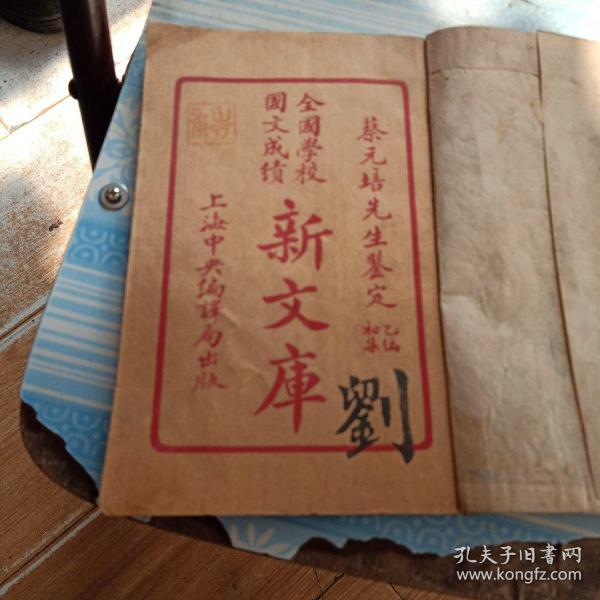 蔡元培先生鉴定
乙编
初集
全國學校
國文成績
新文庫
上海中央編譯局出版
劉
孔夫子旧书网
www.kongfz.com